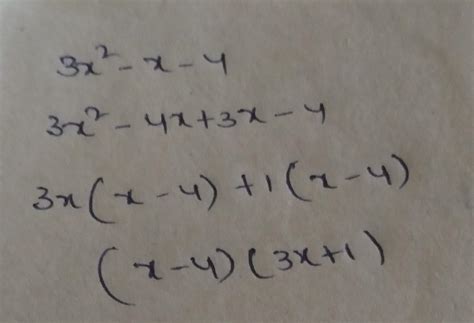 3x² - x - 4
3x² - 4x + 3x - 4
3x(x - 4) + 1(x - 4)
(x - 4)(3x + 1)